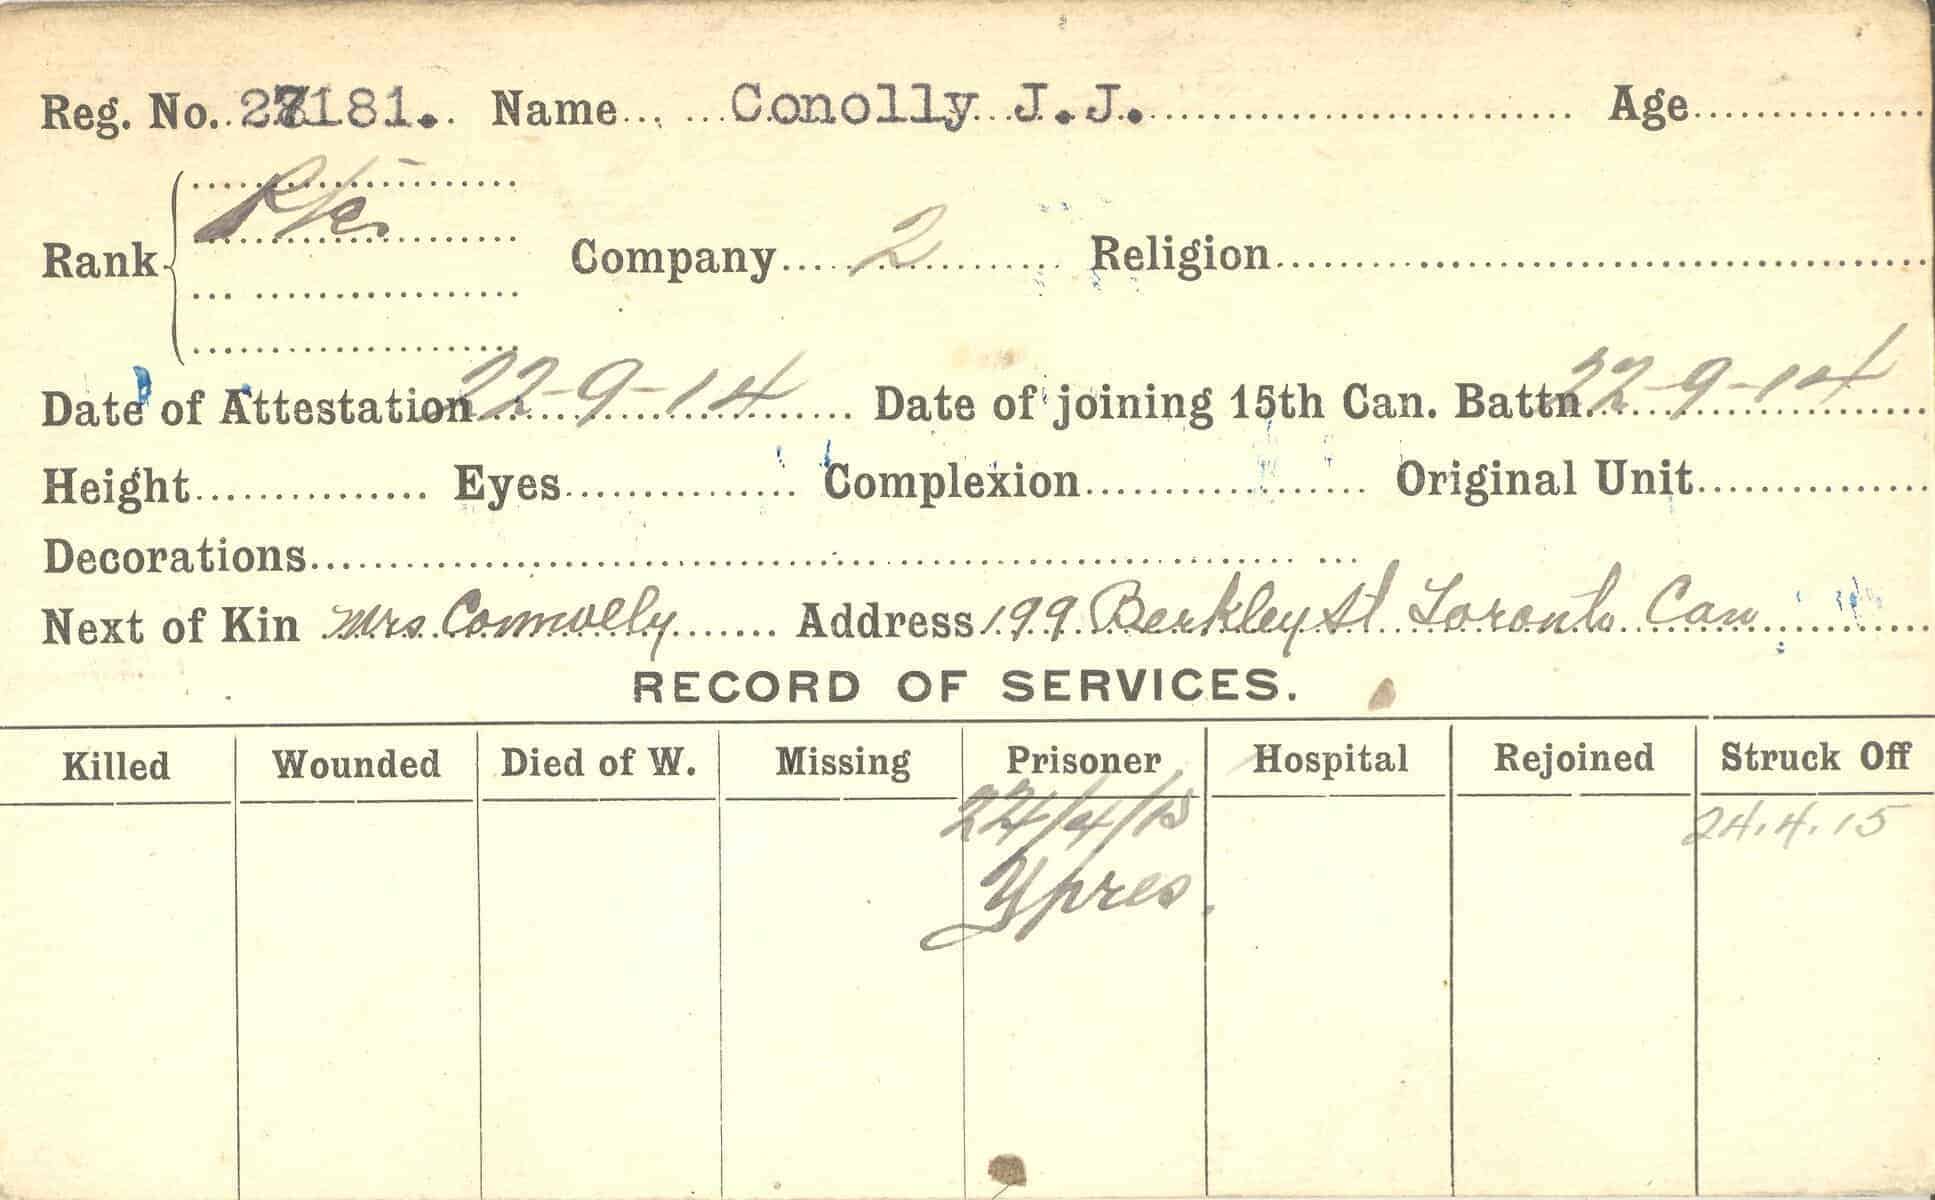 Reg. No. 27181. Name Conolly J.J. Age
Rank Pte. Company 2 Religion
Date of Attestation 22-9-14 Date of joining 15th Can. Battn. 22-9-14
Height Eyes Complexion Original Unit
Decorations
Next of Kin Mrs. Connolly Address 199 Berkley St. Toronto Can
RECORD OF SERVICES.
Killed Wounded Died of W. Missing Prisoner Hospital Rejoined Struck Off
24/4/15 24.4.15
Ypres.